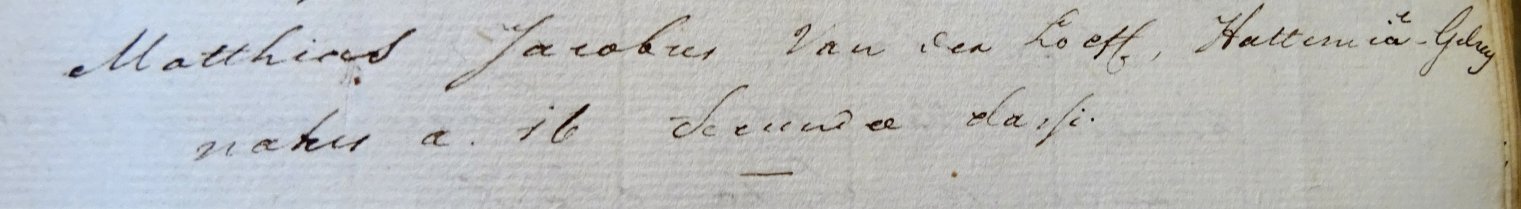 Matthias Jacobus Van der Loeff, Hattemiâ-Gelrus
natus a. 16 Secundæ classi.